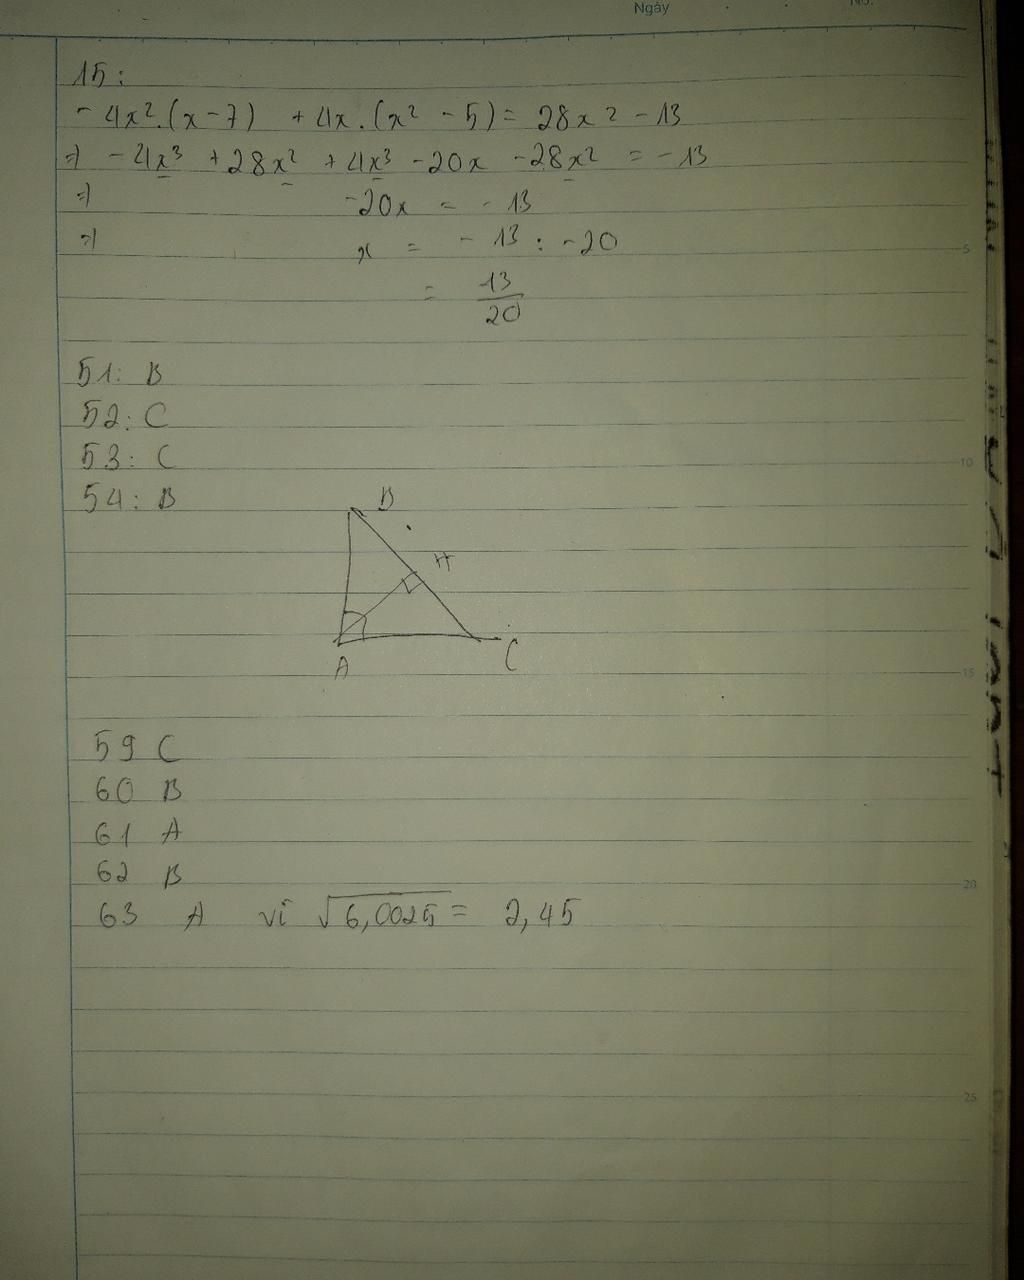 Ngày
No.
15:
- 4x².(x-7) + 4x.(x² - 5) = 28x² - 13
=) - 4x³ + 28x² + 4x³ - 20x - 28x² = - 13
=) -20x = - 13
=) x = - 13 : -20
5
= 13/20
51: B
52: C
53: C
10
54: B
B
H
A
C
15
59 C
60 B
61 A
62 B
20
63 A vì √6,0025 = 2,45
25